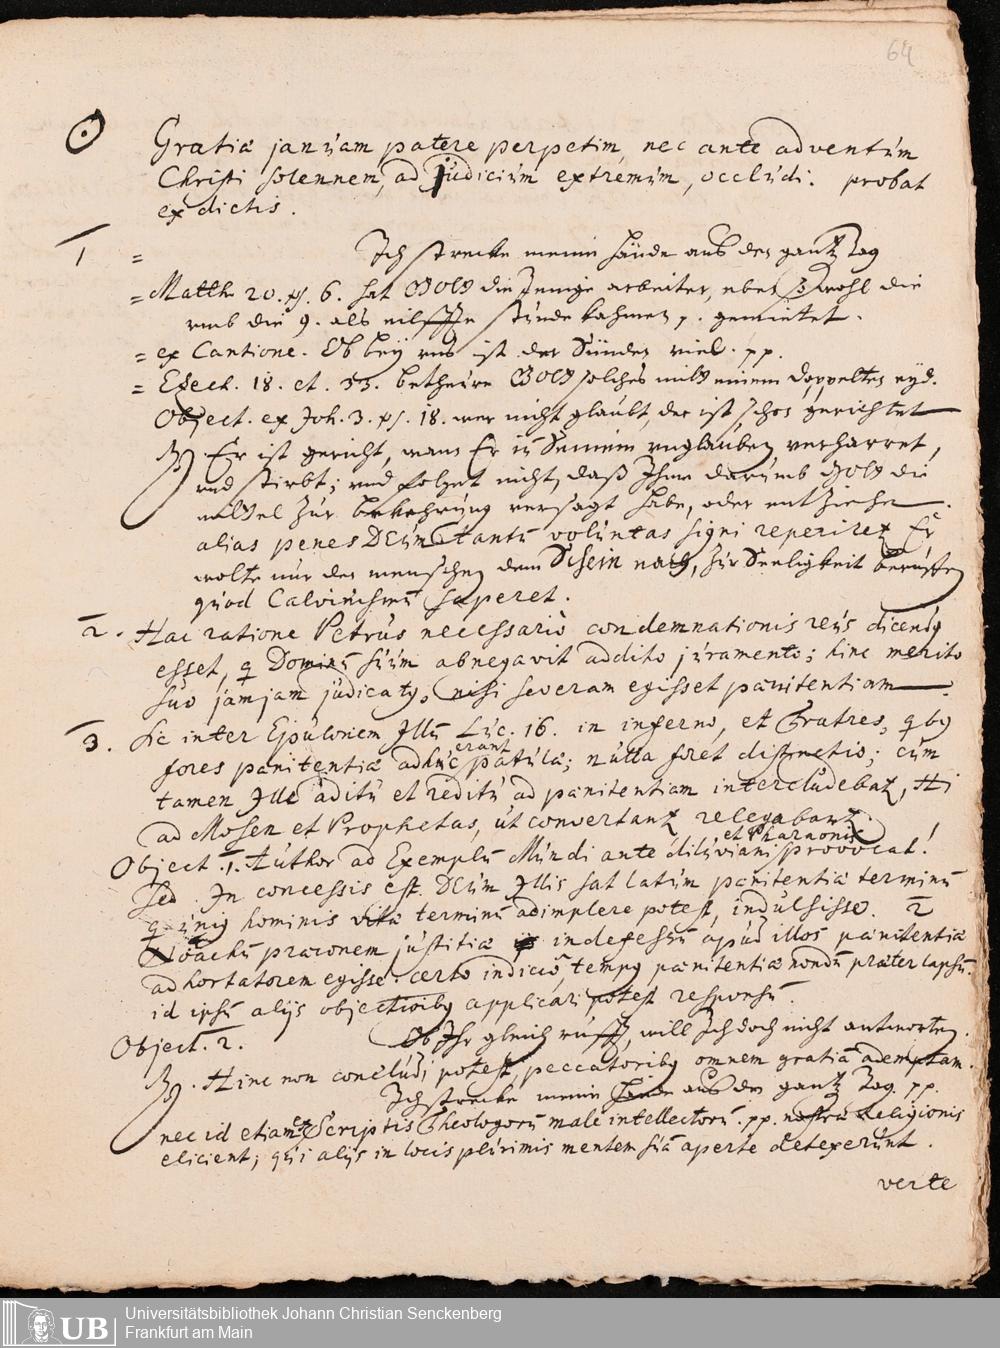 64
Gratiæ januam patere perpetim, nec ante adventum
Christi solennem, ad judicium extremum, occludi. probat
ex dictis.
1 = Ich strecke meine hände aus den gantz Tag
= Matth 20. ps. 6. hat GOtt die Jenige arbeiter, eben so wohl die
umb die 9. als eilffte stunde kahmen, gemietet.
= ex Cantione. Ob bey uns ist der Sünden viel. pp.
= Ezech. 18. et. 33. betheure GOtt solches mitt einem doppelten eyd.
Object. ex Joh. 3. ps. 18. wer nicht glaubt, der ist schon gerichtet
Er ist gericht, wann Er in Seinem unglauben verharret,
und stirbt; und folget nicht, daß Ihme darumb Gott die
mittel zur bekehrung versagt habe, oder entziehe.
alias penes DEum tantū voluntas signi reperiret Er
wolte nur den menschen dem Schein nach, zur Seeligkeit beruffen
quod Calvinismū saperet.
2. Hac ratione Petrus necessariò condemnationis reus dicendus
esset, q Dominū suum abnegavit addito juramento; hinc merito
suo jamjam judicatus, nisi severam egisset pænitentiam.
3. Sic inter Epulonem Illū Luc. 16. in inferno, et Fratres, quibus
fores pænitentiæ adhuc erant patulæ; nulla foret distinctio; cùm
tamen Ille aditū et reditū ad pænitentiam intercludebat, Hi
ad Mosen et Prophetas, ut convertant relegabant.
Object. 1. Author ad Exemplū Mundi ante diluviani et Pharaonis provocat!
Sed. In concessis est. DEum Illis sat latum pænitentiæ terminū
q unius hominis vitæ terminū adimplere potest, indulsisse. 2
Noachū præconem justitiæ indefessū apud illos pænitentiæ
adhortatorem egisse. certo indicio, tempus pænitentiæ nondū præterlapsū.
id ipsū aliis objectionibus applicari potest responsū.
Object. 2. Ob Ihr gleich rufft, will Ich doch nicht antworten.
Hinc non concludi potest, peccatoribus omnem gratiā ademptam.
Ich strecke meine Hände aus den gantz Tag. pp.
nec id etiam ex Scriptis Theologorū male intellectorū. pp. nostræ Religionis
elicient; qui aliis in locis plurimis mentem suā aperte detexerunt.
verte
UB Universitätsbibliothek Johann Christian Senckenberg
Frankfurt am Main